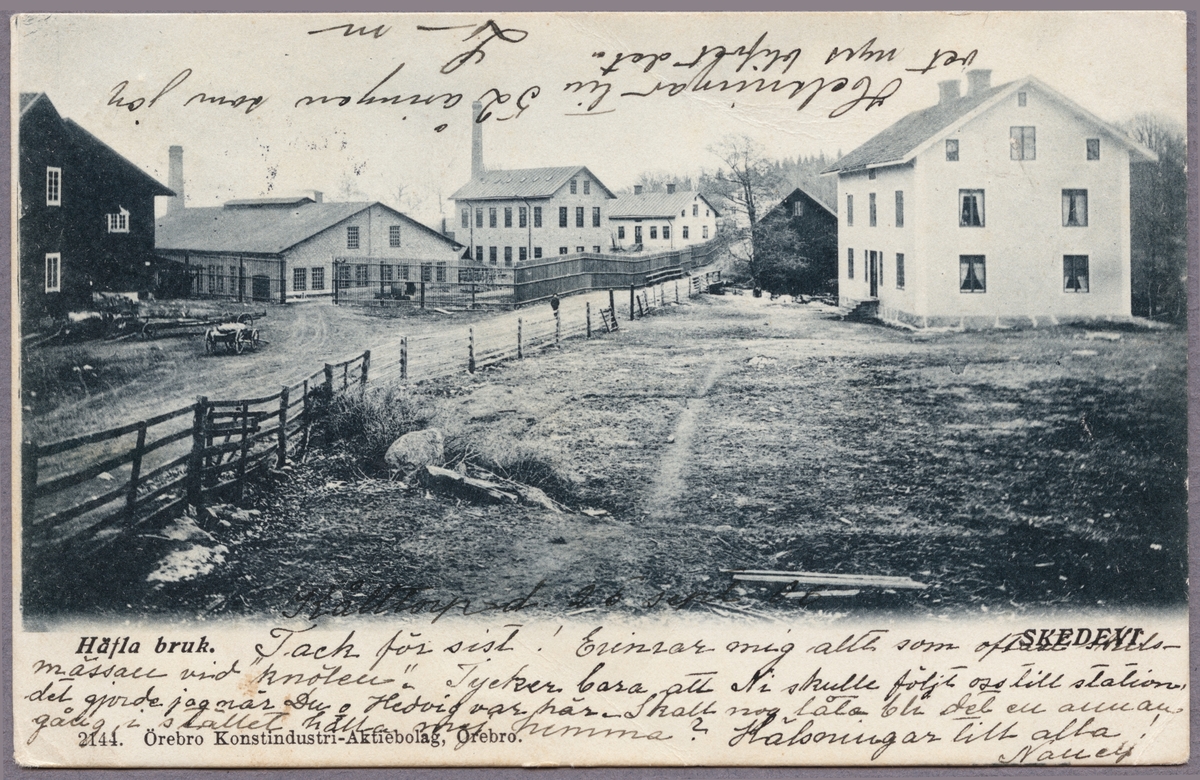 vet nys blifvit det.
Helsningar till 52 åringen som jag
L-n
Häfla bruk.
SKEDEVI.
Tack för sist! Erinrar mig allt som oftast
mässan vid "knölen". Tycker bara att Ni skulle följt oss till station,
det gjorde jag när Du o Hedvig var här. Skall nog låta bli det en annan
gång i stället hålla mig hemma? Hälsningar till alla!
Nancy
2144. Örebro Konstindustri-Aktiebolag, Örebro.